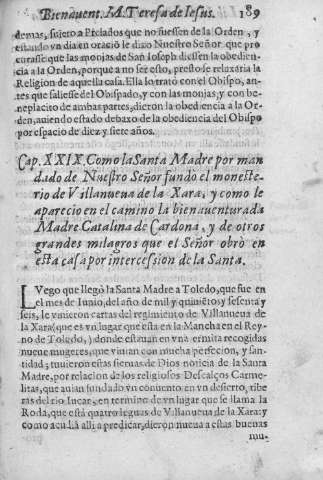 Bienauent. M. Teresa de Iesus. 189
demas, sujeto a Prelados que no fuessen de la Orden, y
estando vn dia en oració le dixo Nuestro Señor que pro
curasse que las monjas de San Ioseph diessen la obedien-
cia a la Orden, porque a no ser esto, presto se relaxaria la
Religion de aquella casa. Ella lo trató con el Obispo, an-
tes que saliesse del Obispado, y con las monjas, y con be-
neplacito de ambas partes, dieron la obediencia a la Or-
den, auiendo estado debaxo de la obediencia del Obispo
por espacio de diez y siete años.
Cap. XXIX. Como la Santa Madre por man
dado de Nuestro Señor fundò el moneste-
rio de Villanueua de la Xara, y como le
aparecio en el camino la bienauenturada
Madre Catalina de Cardona, y de otros
grandes milagros que el Señor obrò en
esta casa por intercession de la Santa.
LVego que llegò la Santa Madre a Toledo, que fue en
el mes de Iunio, del año de mil y quiniétos y sesenta y
seis, le vinieron cartas del regimiento de Villanueua de
la Xara (que es vn lugar que esta en la Mancha en el Rey-
no de Toledo,) donde estauan en vna ermita recogidas
nueue mugeres, que viuian con mucha perfecion, y san-
tidad; tuuieron estas sieruas de Dios noticia de la Santa
Madre, por relacion de los religiosos Descalços Carme-
litas, que auian fundado vn conuento en vn desierto, ribe
ras del rio Iucar, en termino de vn lugar que se llama la
Roda, que està quatro leguas de Villanueua de la Xara: y
como acudia alli a predicar, dieron nueua a estas buenas
mu-